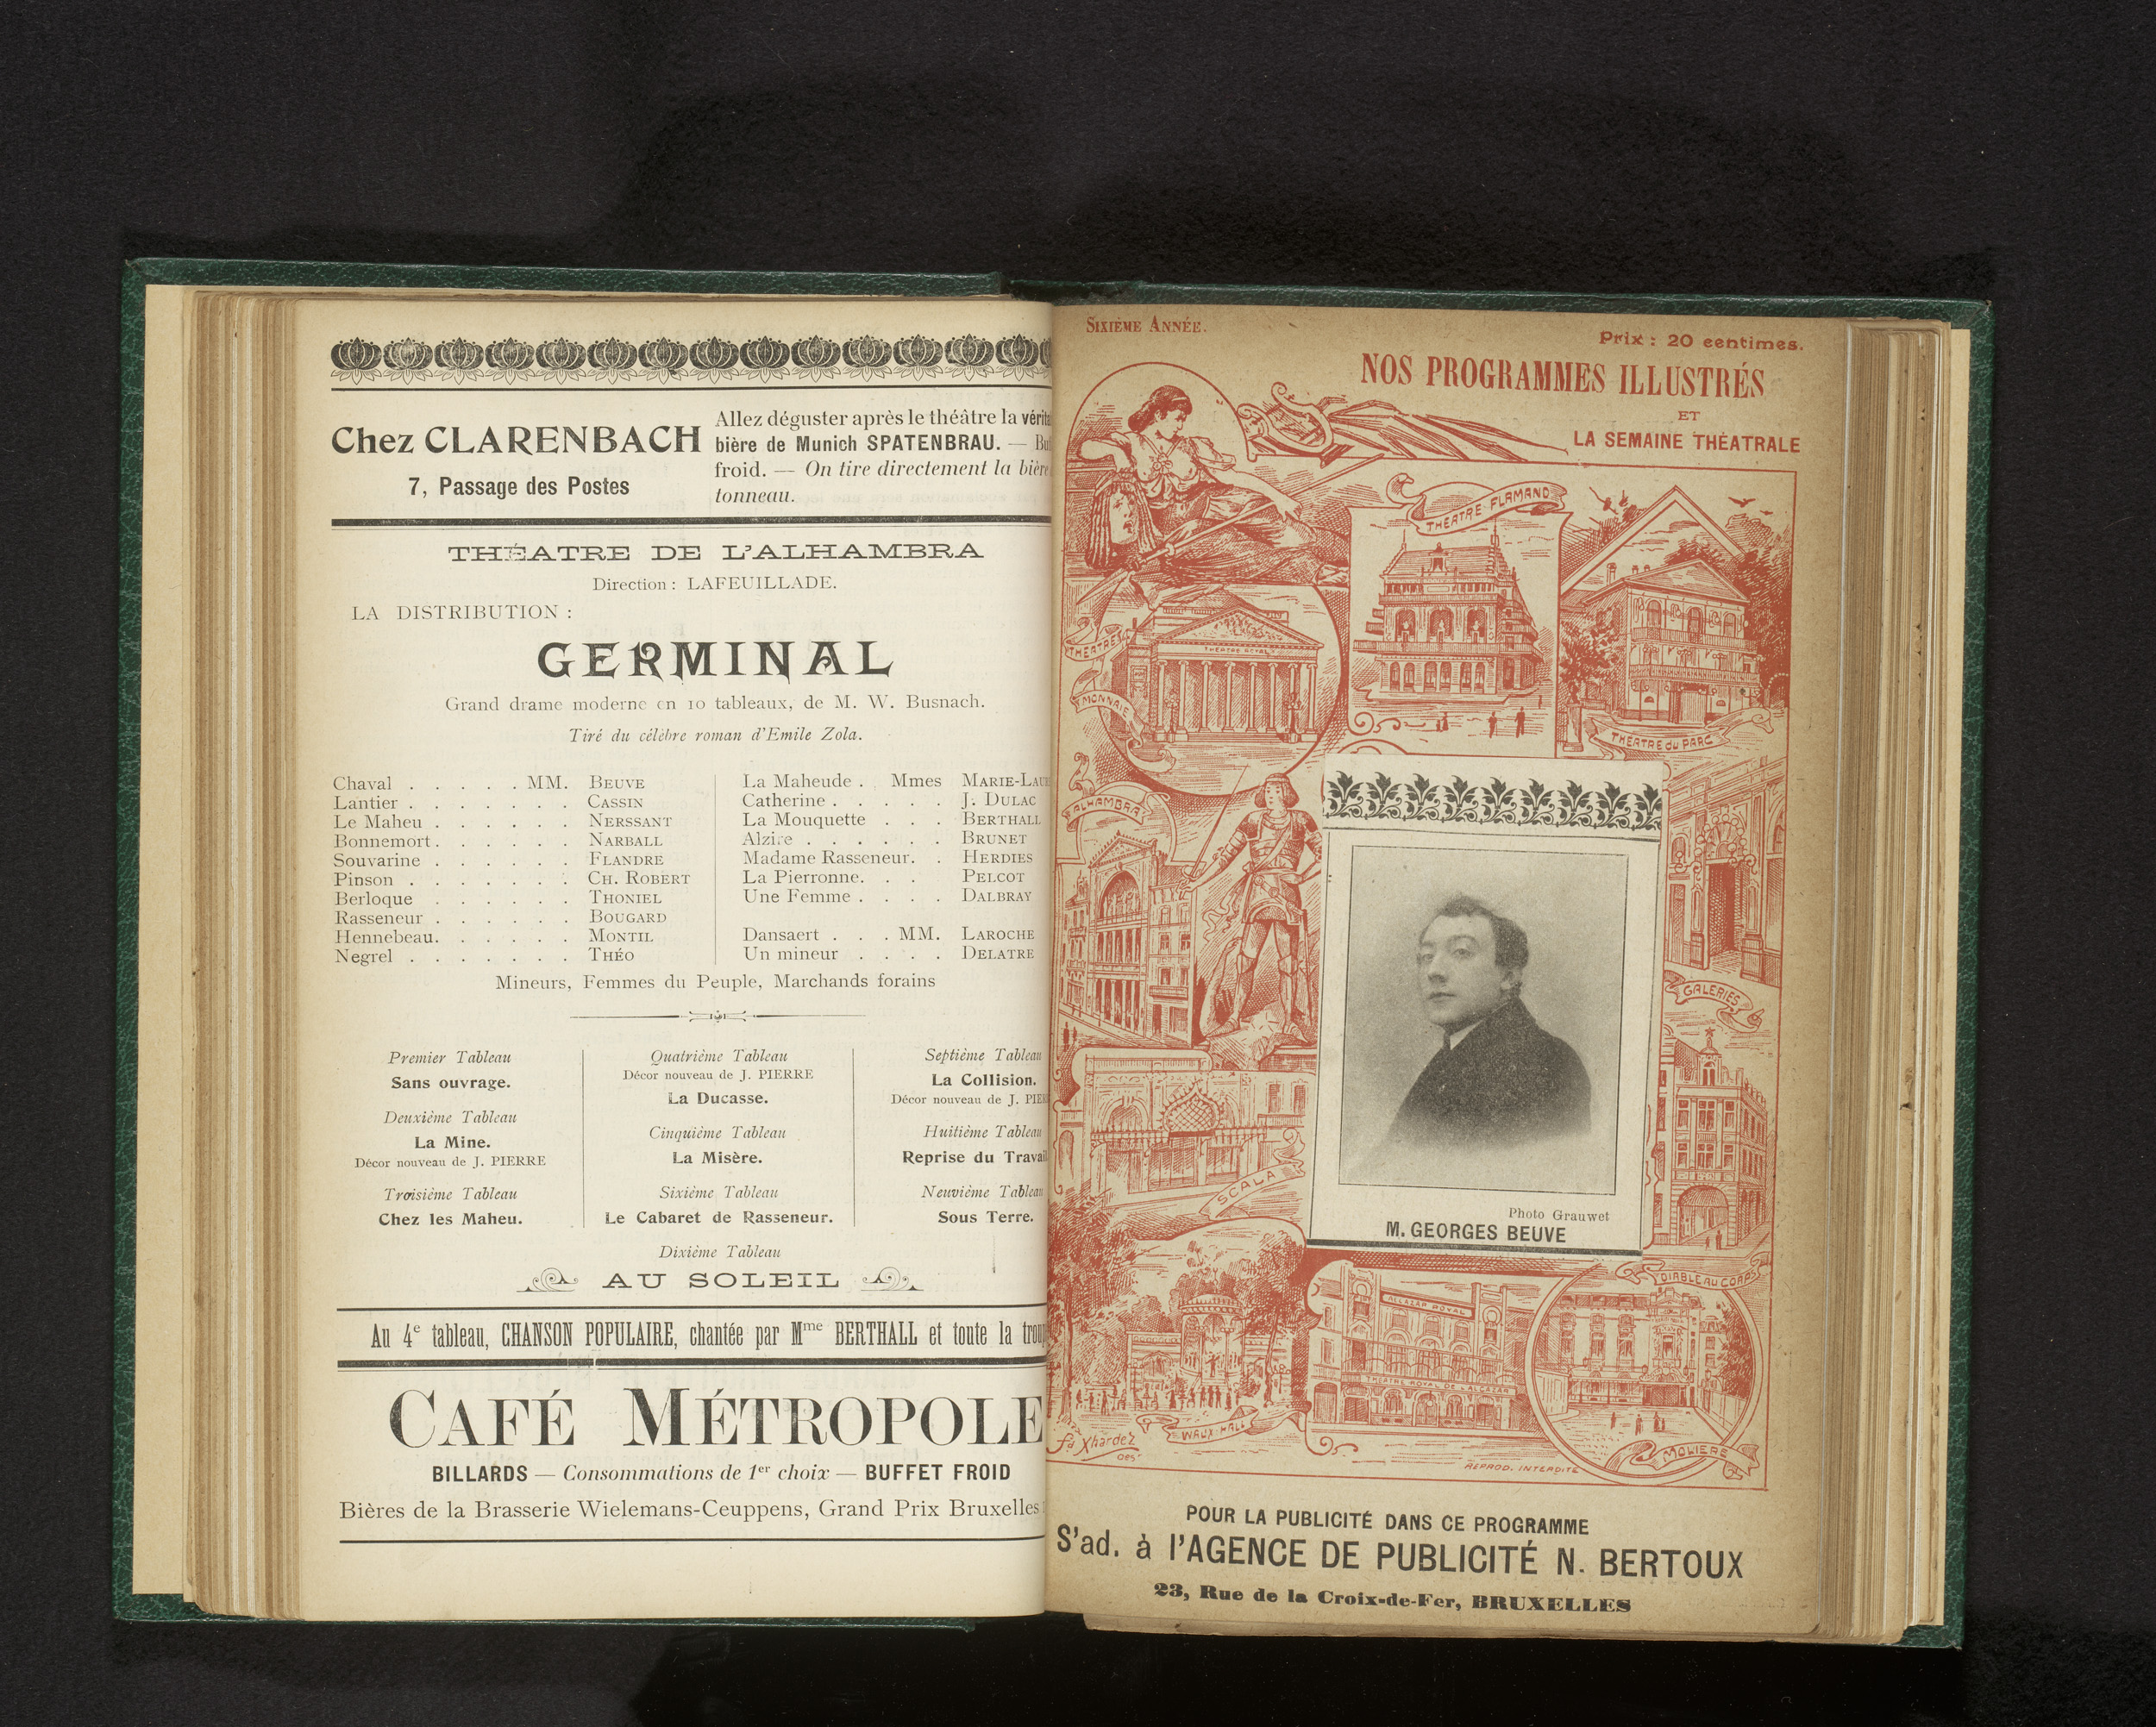 Chez CLARENBACH
7, Passage des Postes
Allez déguster après le théâtre la
bière de Munich SPATENBRAU. —
froid. — On tire directement la bière
tonneau.
THÉATRE DE L'ALHAMBRA
Direction : LAFEUILLADE.
LA DISTRIBUTION :
GERMINAL
Grand drame moderne en 10 tableaux, de M. W. Busnach.
Tiré du célèbre roman d'Emile Zola.
Chaval . . . . . MM. BEUVE
Lantier . . . . . . . CASSIN
Le Maheu . . . . . . NERSSANT
Bonnemort . . . . . . NARBALL
Souvarine . . . . . . FLANDRE
Pinson . . . . . . . CH. ROBERT
Berloque . . . . . . THONIEL
Rasseneur . . . . . . BOUGARD
Hennebeau. . . . . . MONTIL
Negrel . . . . . . . THÉO
La Maheude . Mmes
Catherine . . . . . J. DULAC
La Mouquette . . . BERTHALL
Alzire . . . . . . BRUNET
Madame Rasseneur. . HERDIES
La Pierronne. . . PELCOT
Une Femme . . . . DALBRAY
Dansaert . . . MM. LAROCHE
Un mineur . . . . DELATRE
Mineurs, Femmes du Peuple, Marchands forains
Premier Tableau
Sans ouvrage.
Deuxième Tableau
La Mine.
Décor nouveau de J. PIERRE
Troisième Tableau
Chez les Maheu.
Quatrième Tableau
Décor nouveau de J. PIERRE
La Ducasse.
Cinquième Tableau
La Misère.
Sixième Tableau
Le Cabaret de Rasseneur.
Septième Tableau
La Collision.
Décor nouveau de J.
Huitième Tableau
Reprise du
Neuvième Tableau
Sous Terre.
Dixième Tableau
AU SOLEIL
Au 4e tableau, CHANSON POPULAIRE, chantée par Mme BERTHALL et toute la
CAFÉ MÉTROPOLE
BILLARDS — Consommations de 1er choix — BUFFET FROID
Bières de la Brasserie Wielemans-Ceuppens, Grand Prix Bruxelles
SIXIÈME ANNÉE.
Prix : 20 centimes.
NOS PROGRAMMES ILLUSTRÉS
ET
LA SEMAINE THÉATRALE
THÉATRE FLAMAND
THÉATRES
THÉATRE ROYAL
MONNAIE
THÉATRE du PARC
ALHAMBRA
GALERIES
SCALA
Photo Grauwet
M. GEORGES BEUVE
DIABLE AU CORPS
ALCAZAR ROYAL
THÉATRE ROYAL DE L'ALCAZAR
WAUX-HALL
MOLIÈRE
Fd Xhardez
Des.
REPROD. INTERDITE
POUR LA PUBLICITÉ DANS CE PROGRAMME
S'ad. à l'AGENCE DE PUBLICITÉ N. BERTOUX
23, Rue de la Croix-de-Fer, BRUXELLES